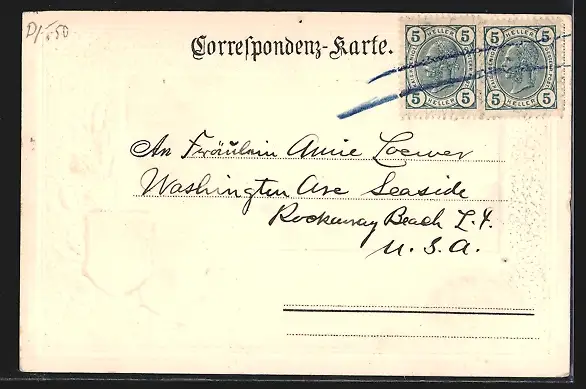 Correspondenz-Karte.
5 HELLER 5
5 HELLER 5
5 HELLER 5
5 HELLER 5
An Fräulein Anie Loewer
Washington Ave Seaside
Rockaway Beach L. Y.
U. S. A.